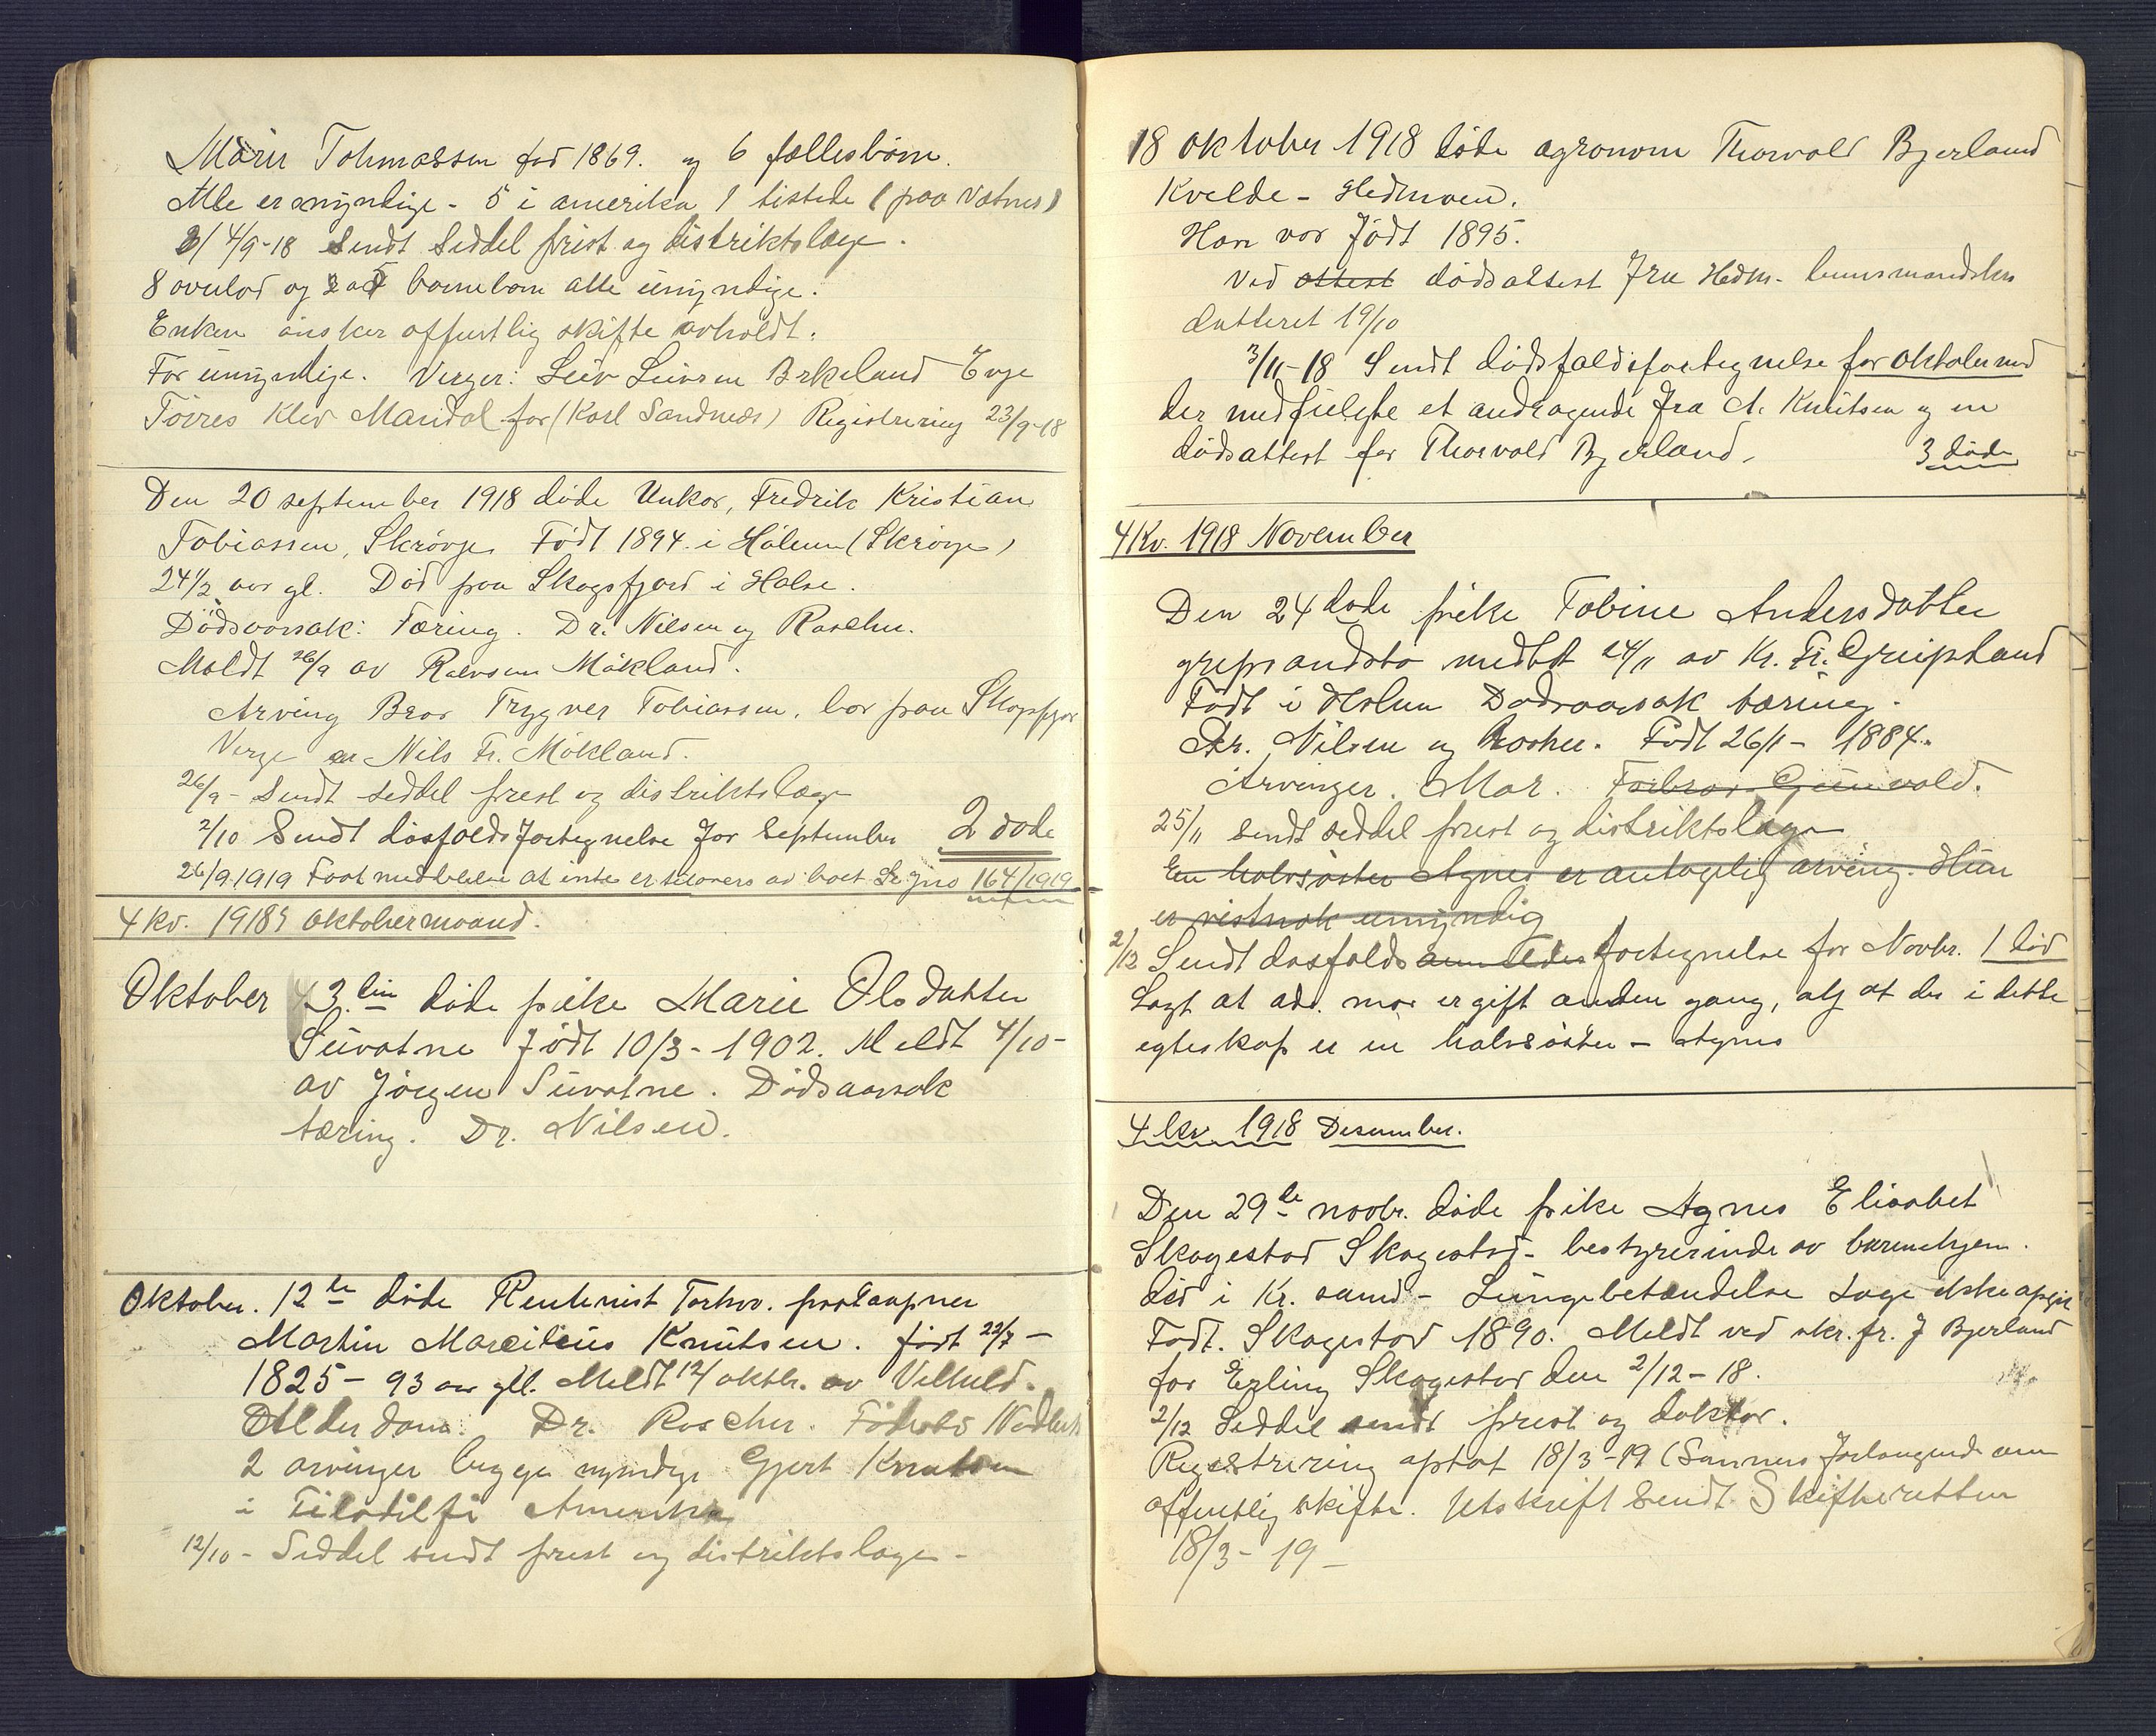 Marie Tohmassen fød 1869. og 6 fællesbørn.
Alle er myndige - 5 i amerika 1 tilstede (paa Vatnes)
4/9-18 Sendt Seddel prest og distriktslæge.
8 overlod og 5 barnebarn alle umyndige.
Enken ønsker offentlig skifte avholdt.
For umyndige. Verger: Leiv Leivsen Birkeland Evje
Tørres Klev Mandal for (Karl Sandnæs) Registrering 23/9-18
Den 20 september 1918 døde Unkar, Fredrik Kristian
Tobiassen, Skrøvje. Født 1894. i Hålum (Skrøvje)
24 1/2 aar gl. Død paa Skogsfjord i Halse.
Dødsaarsak: Tæring. Dr. Nilsen og Roscher.
Meldt 26/9 av Møkland.
Arving Bror Trygver Tobiassen, bor paa Skogsfjor
Verge er Nils Fr. Møkland.
26/9 - Sendt seddel prest og distriktslæge
2/10 Sendt døsfaldsfortegnelse for September 2 døde
26/9 1919 Faat meddelelse at intet er tilovers av boet Se Jno 164/1919
4 kv. 1918 Oktobermaand.
Oktober 3. die døde pike Marie Olsdatter
Suvatne født 10/3-1902. Meldt 4/10-
av Jørgen Suvatne. Dødsaarsak
tæring. Dr. Nilsen.
Oktober. 12te døde Rentenist Forhv.
Martin Marcilius Knutsen. født 22/7 -
1825 - 93 aar gl. Meldt 12/ oktbr. av
Alderdom. Dr. Roscher. Fødested
2 arvinger begge myndige Gjert Knutsen
i Filadilfi Amerika
12/10 - Seddel sendt prest og distriktslæge -
18 oktober 1918 døde agronom Thorvald Bjerland
Kvelde - Hedmoen.
Han var født 1895.
Ved attest dødsattest fra Hedm. lensmandsk.
datteret 19/10
3/11-18 Sendt dødsfaldsfortegnelse for oktober med
der medfulgte et andragende fra A. Knutsen og en
dødsattest for Thorvald Bjerland. 3 døde
4 Kv. 1918 November
Den 24 døde pike Tobine Andersdatter
medlt 24/11 av Kr. Fr. Greipsland
Født i Holum Dødsaarsak tæring.
Dr. Nilsen og Rosher. Født 26/1 - 1884.
Arvinger. Mor. Farbror Gunvald.
25/11 sendt seddel prest og distriktslæge
En halvsøster Agnes er antagelig arving. Hun
er vistnok umyndig
2/12 Sendt døsfalds anmeldes fortegnelse for Novbr. 1 død
Sagt at avd. mor er gift anden gang, og at der i dette
egteskap er en halvsøster - Agnes
4 kv 1918 Desember.
Den 29de novbr. døde pike Agnes Elisabet
Skagestad Skagestad - bestyrerinde av barnehjem.
død i Kr. sand - Lungebetændelse Læge ikke opgit
Født. Skagestad 1890. Meldt ved skr. fr. J Bjerland
for Erling Skagestad den 2/12-18.
2/12 Seddel sendt prest og doktor.
Registrering optat 18/3-19 (Sammes forlangende om
offentlig skifte. Utskrift sendt Skifteretten
18/3 - 19 -